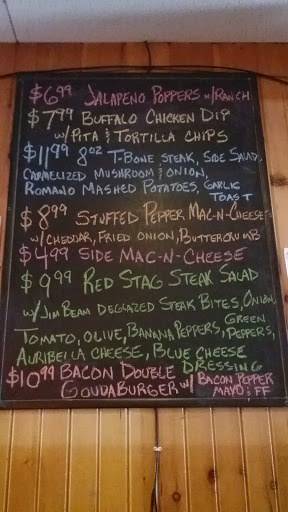 $6.99 JALAPENO POPPERS w/RANCH
$7.99 BUFFALO CHICKEN DIP
w/PITA & TORTILLA CHIPS
$11.99 8oz T-BONE STEAK, SIDE SALAD,
CARMELIZED MUSHROOM & ONION,
ROMANO MASHED POTATOES, GARLIC
TOAST
$8.99 STUFFED PEPPER MAC-N-CHEESE
w/CHEDDAR, FRIED ONION, BUTTERCRUMB
$4.99 SIDE MAC-N-CHEESE
$9.99 RED STAG STEAK SALAD
w/JIM BEAM DEGLAZED STEAK BITES, ONION,
TOMATO, OLIVE, BANANA PEPPERS, GREEN PEPPERS,
AURIBELLA CHEESE, BLUE CHEESE
DRESSING
$10.99 BACON DOUBLE
GOUDABURGER w/ BACON PEPPER
MAYO & FF